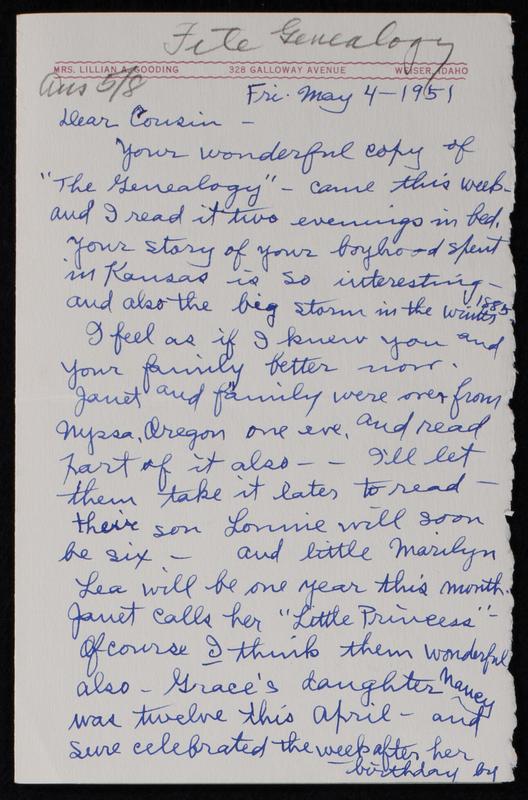 Fite Genealogy
MRS. LILLIAN GOODING 328 GALLOWAY AVENUE WEISER, IDAHO
Ans 5/8
Fri. May 4-1951
Dear Cousin -
Your wonderful copy of
"The Genealogy" - came this week -
and I read it two evenings in bed.
Your story of your boyhood spent
in Kansas is so interesting -
and also the big storm in the winter 1885
I feel as if I knew you and
your family better now.
Janet and family were over from
Nyssa, Oregon one eve, and read
part of it also - - I'll let
them take it later to read -
their son Lonnie will soon
be six - and little Marilyn
Lea will be one year this month.
Janet calls her "Little Princess" -
Of course I think them wonderful
also - Grace's daughter Nancy
was twelve this April - and
sure celebrated the week after her
birthday by